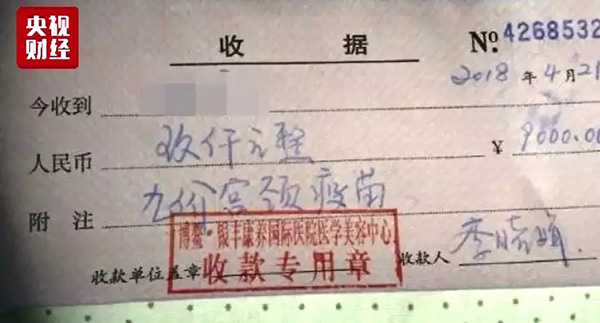 央视
财经
收据 No. 4268532
2018年4月21
今收到
人民币 玖仟元整 ¥9000.00
附注 九价宫颈疫苗
博鳌·银丰康养国际医院医学美容中心
收款专用章
收款单位盖章 收款人 李晓